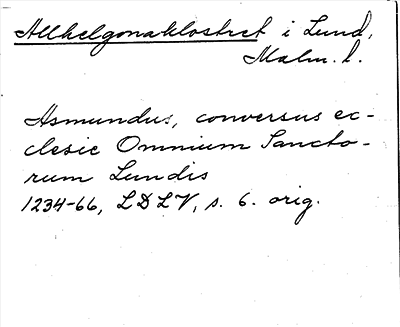 Allhelgonaklostret i Lund,
Malm. l.
Asmundus, conversus ec-
clesie Omnium Sancto-
rum Lundis
1234-66, LDLV, s. 6. orig.